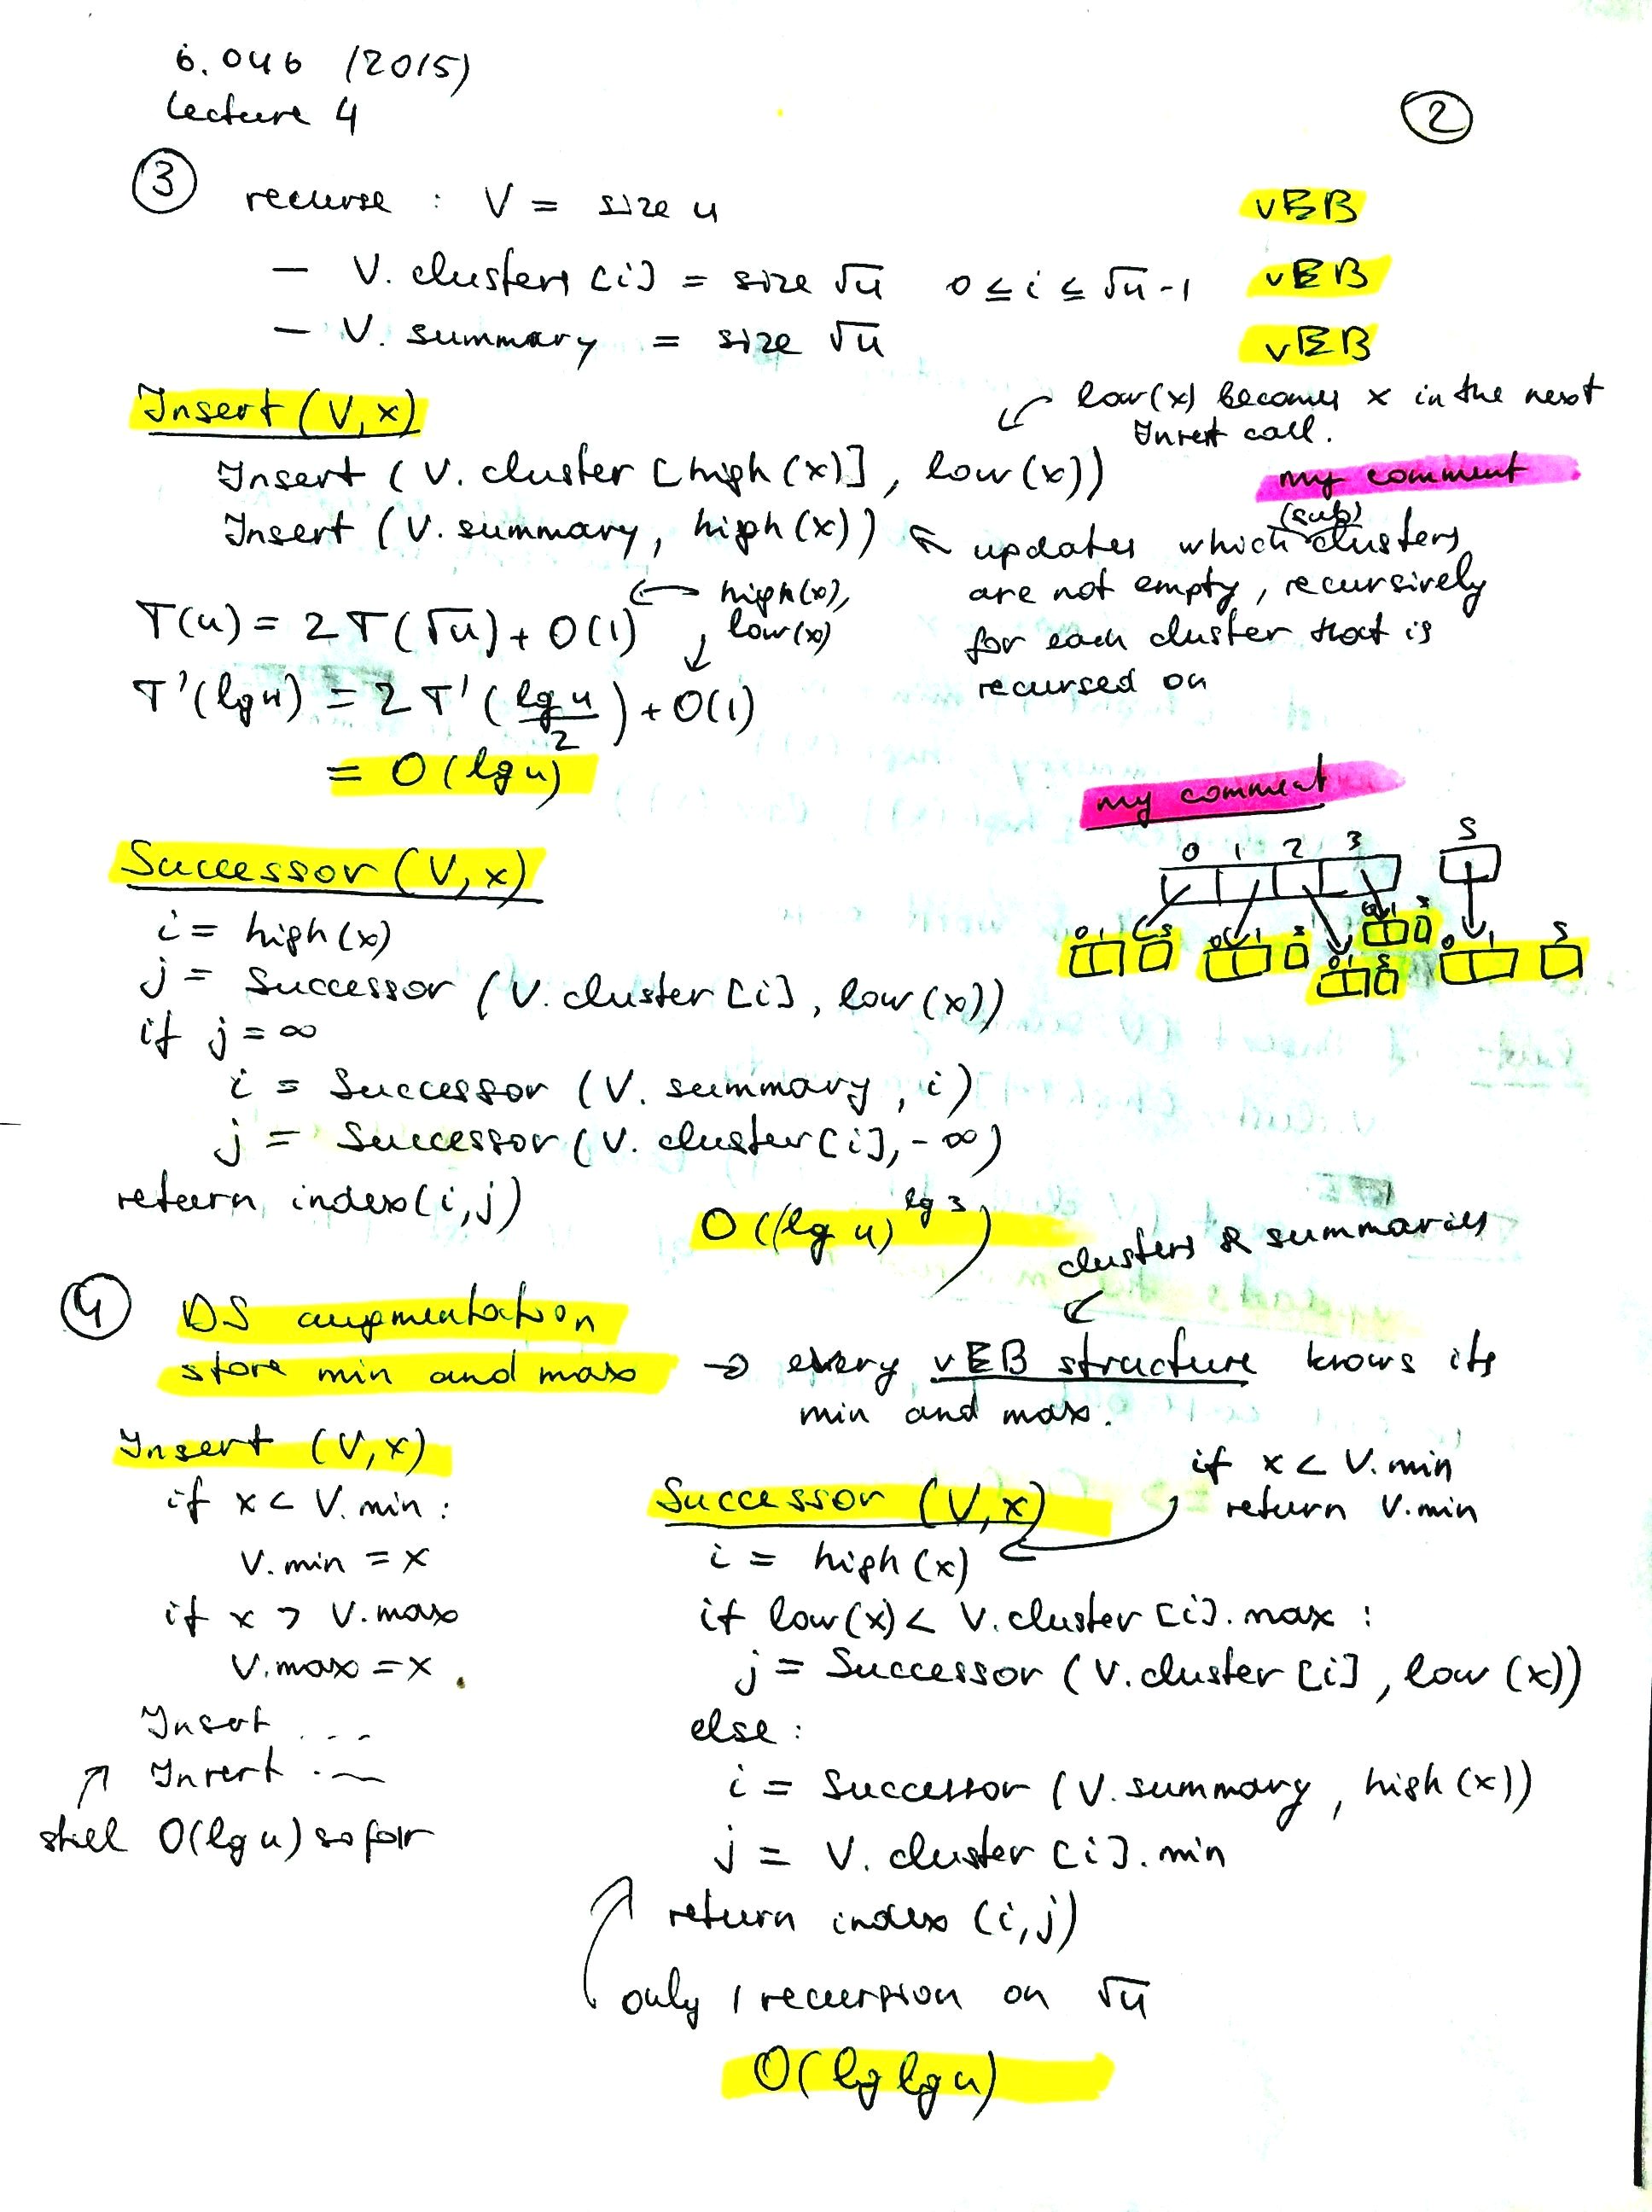 6.046 (2015)
Lecture 4
2
3 recurse : V = size u vEB
— V. clusters [i] = size √u 0 ≤ i ≤ √u -1 vEB
— V. summary = size √u vEB
Insert (V, x)
low(x) becomes x in the next
Insert call.
Insert (V. cluster [high (x)], low (x))
my comment
Insert (V. summary, high (x))
(sub)
updates which clusters
are not empty, recursively
for each cluster that is
recursed on
T(u) = 2 T(√u) + O(1)
high(x),
low(x)
T'(lg u) = 2 T' (lg u / 2) + O(1)
= O (lg u)
my comment
0 1 2 3 S
0 1 S 0 1 S 0 1 S 0 1 S 0 1 S
Successor (V, x)
i = high (x)
j = Successor (V. cluster [i], low (x))
if j = ∞
i = Successor (V. summary, i)
j = Successor (V. cluster [i], -∞)
return index (i, j)
O ((lg u)^lg 3)
clusters & summaries
4 DS augmentation
store min and max → every vEB structure knows its
min and max.
Insert (V, x)
if x < V. min :
V. min = x
if x > V. max
V. max = x .
Insert ...
Insert ...
still O(lg u) so far
Successor (V, x)
if x < V. min
return V. min
i = high (x)
if low (x) < V. cluster [i]. max :
j = Successor (V. cluster [i], low (x))
else :
i = Successor (V. summary, high (x))
j = V. cluster [i]. min
return index (i, j)
only 1 recursion on √u
O( lg lg u)